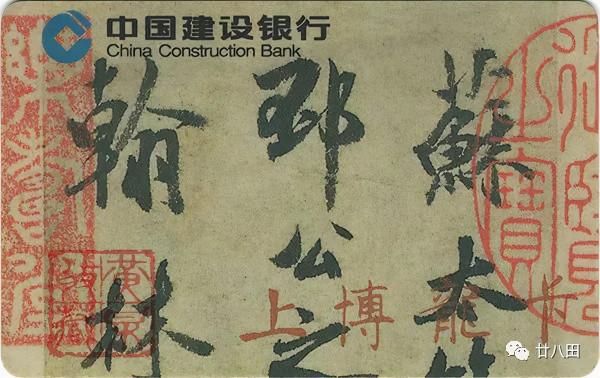 中国建设银行
China Construction Bank
蘇太
邳公之
翰林
上博龍卡
廿八田